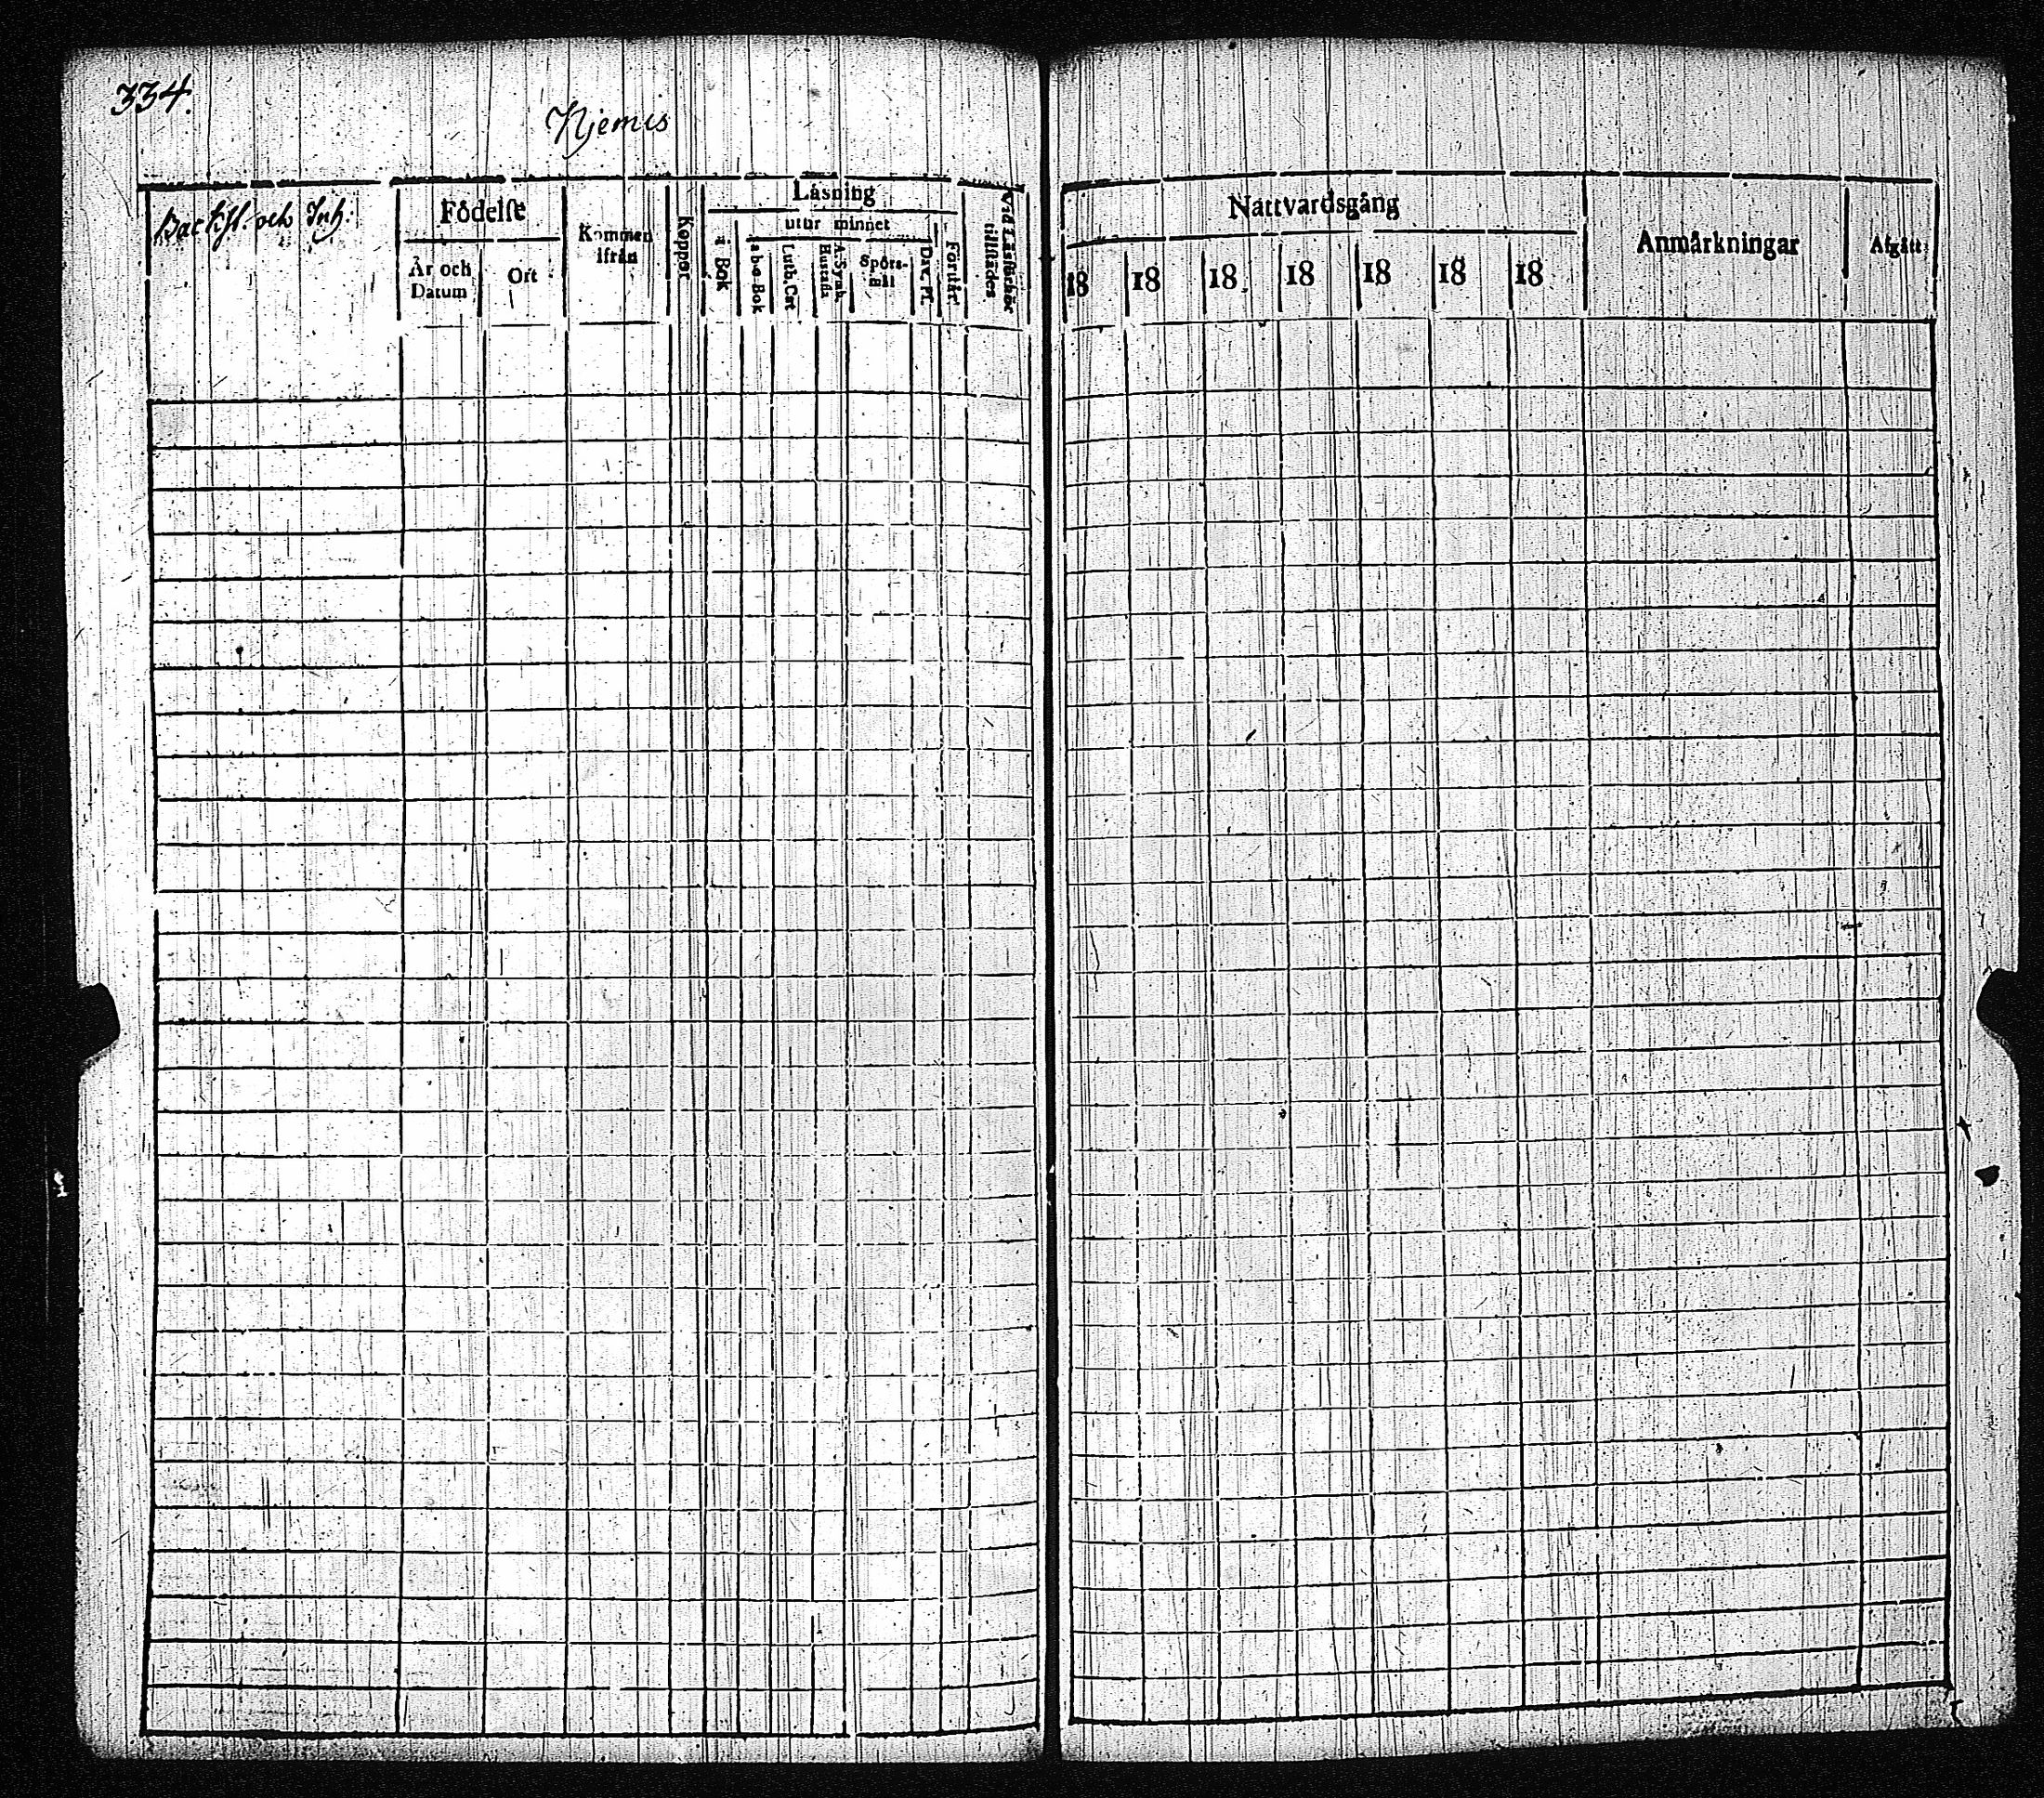 334.
Kjemis
Backst. och Inh:
Födelse
År och Datum
Ort
Kommen ifrån
Koppor
Läsning
i Bok
utur minnet
a-b-c-Bok
Luth. Cat
A. Symb. Hustafl.
Spörs-mål
Dav. Ps.
Förstår
Vid Läsförhör tillstädes
Nattvardsgång
18 18 18 18 18 18 18
Anmärkningar
Afgått